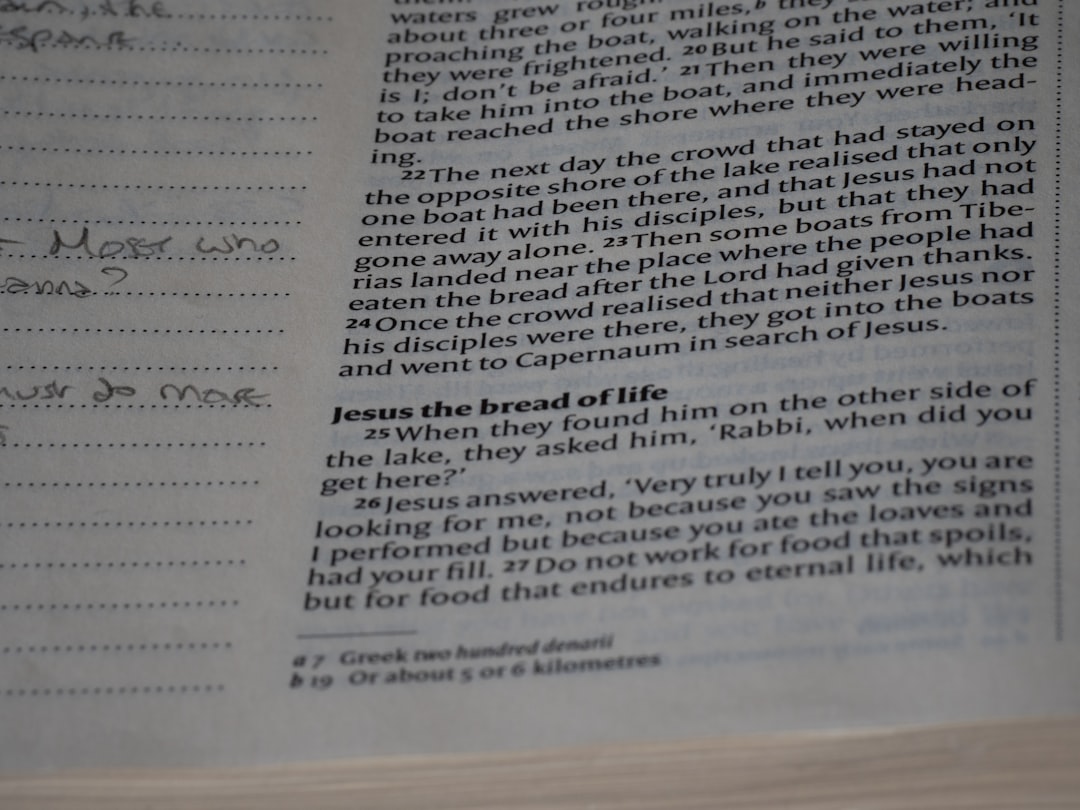 the
- Moses who
must do more
waters grew rough.
about three or four miles,b they
proaching the boat, walking on the water; and
they were frightened. 20 But he said to them, ‘It
is I; don’t be afraid.’ 21 Then they were willing
to take him into the boat, and immediately the
boat reached the shore where they were head-
ing.
22 The next day the crowd that had stayed on
the opposite shore of the lake realised that only
one boat had been there, and that Jesus had not
entered it with his disciples, but that they had
gone away alone. 23 Then some boats from Tibe-
rias landed near the place where the people had
eaten the bread after the Lord had given thanks.
24 Once the crowd realised that neither Jesus nor
his disciples were there, they got into the boats
and went to Capernaum in search of Jesus.
Jesus the bread of life
25 When they found him on the other side of
the lake, they asked him, ‘Rabbi, when did you
get here?’
26 Jesus answered, ‘Very truly I tell you, you are
looking for me, not because you saw the signs
I performed but because you ate the loaves and
had your fill. 27 Do not work for food that spoils,
but for food that endures to eternal life, which
a 7 Greek two hundred denarii
b 19 Or about 5 or 6 kilometres